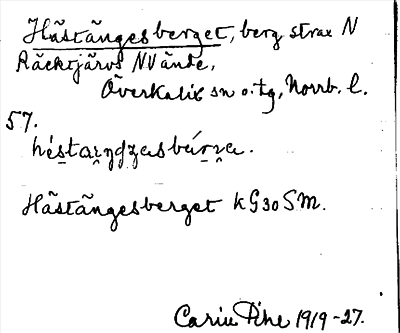 Hästängesberget, berg strax N
Räcktjärvs NV ände,
Överkalix sn o. tg, Norrb. l.
57.
Hästängesberget kG30SM.
Carin Pihl 1919-27.